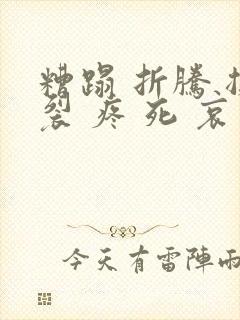 糟蹋 折騰
裂 疼 死 哀
今天有雷陣雨